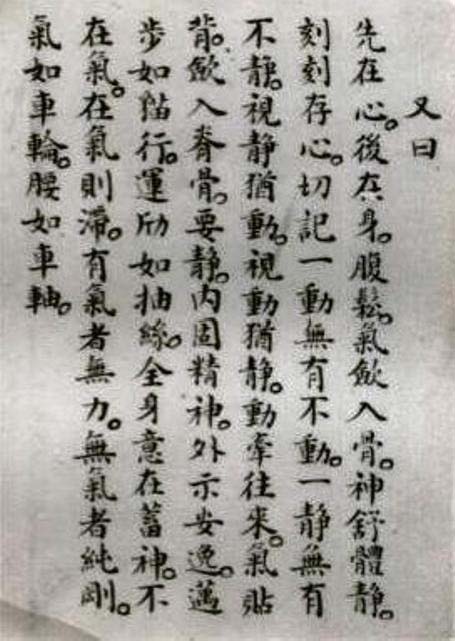 又曰
先在心。後在身。腹鬆。氣歛入骨。神舒體静。
刻刻存心。切記一動無有不動。一静無有
不静。視静猶動。視動猶静。動牽往來。氣貼
背。歛入脊骨。要静。内固精神。外示安逸。邁
步如貓行。運劤如抽絲。全身意在蓄神。不
在氣。在氣則滯。有氣者無力。無氣者純剛。
氣如車輪。腰如車軸。